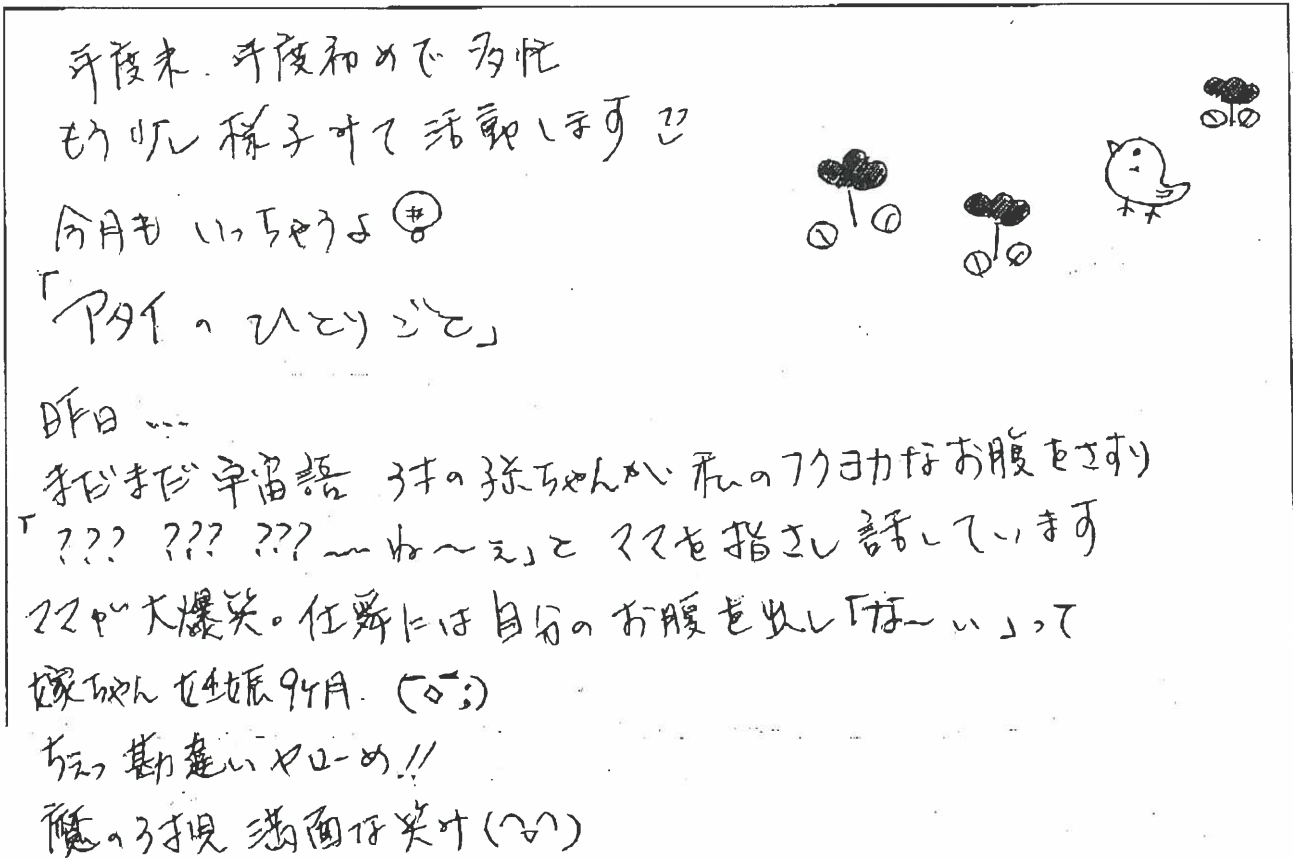 年度末、年度初めで多忙
もう少し様子みて活動します
今月もいっちゃうよ
「アタイのひとりごと」
昨日…
まだまだ宇宙語 3才の孫ちゃんが 私のフクヨカなお腹をさすり
「??? ??? ???〜ね〜ぇ」と ママを指さし話しています
ママが大爆笑。仕舞には自分のお腹を出し「な〜い」って
嫁ちゃん 妊娠9ヶ月.
ちぇっ 勘違いヤローめ!!
魔の3才児 満面な笑み(^▽^)